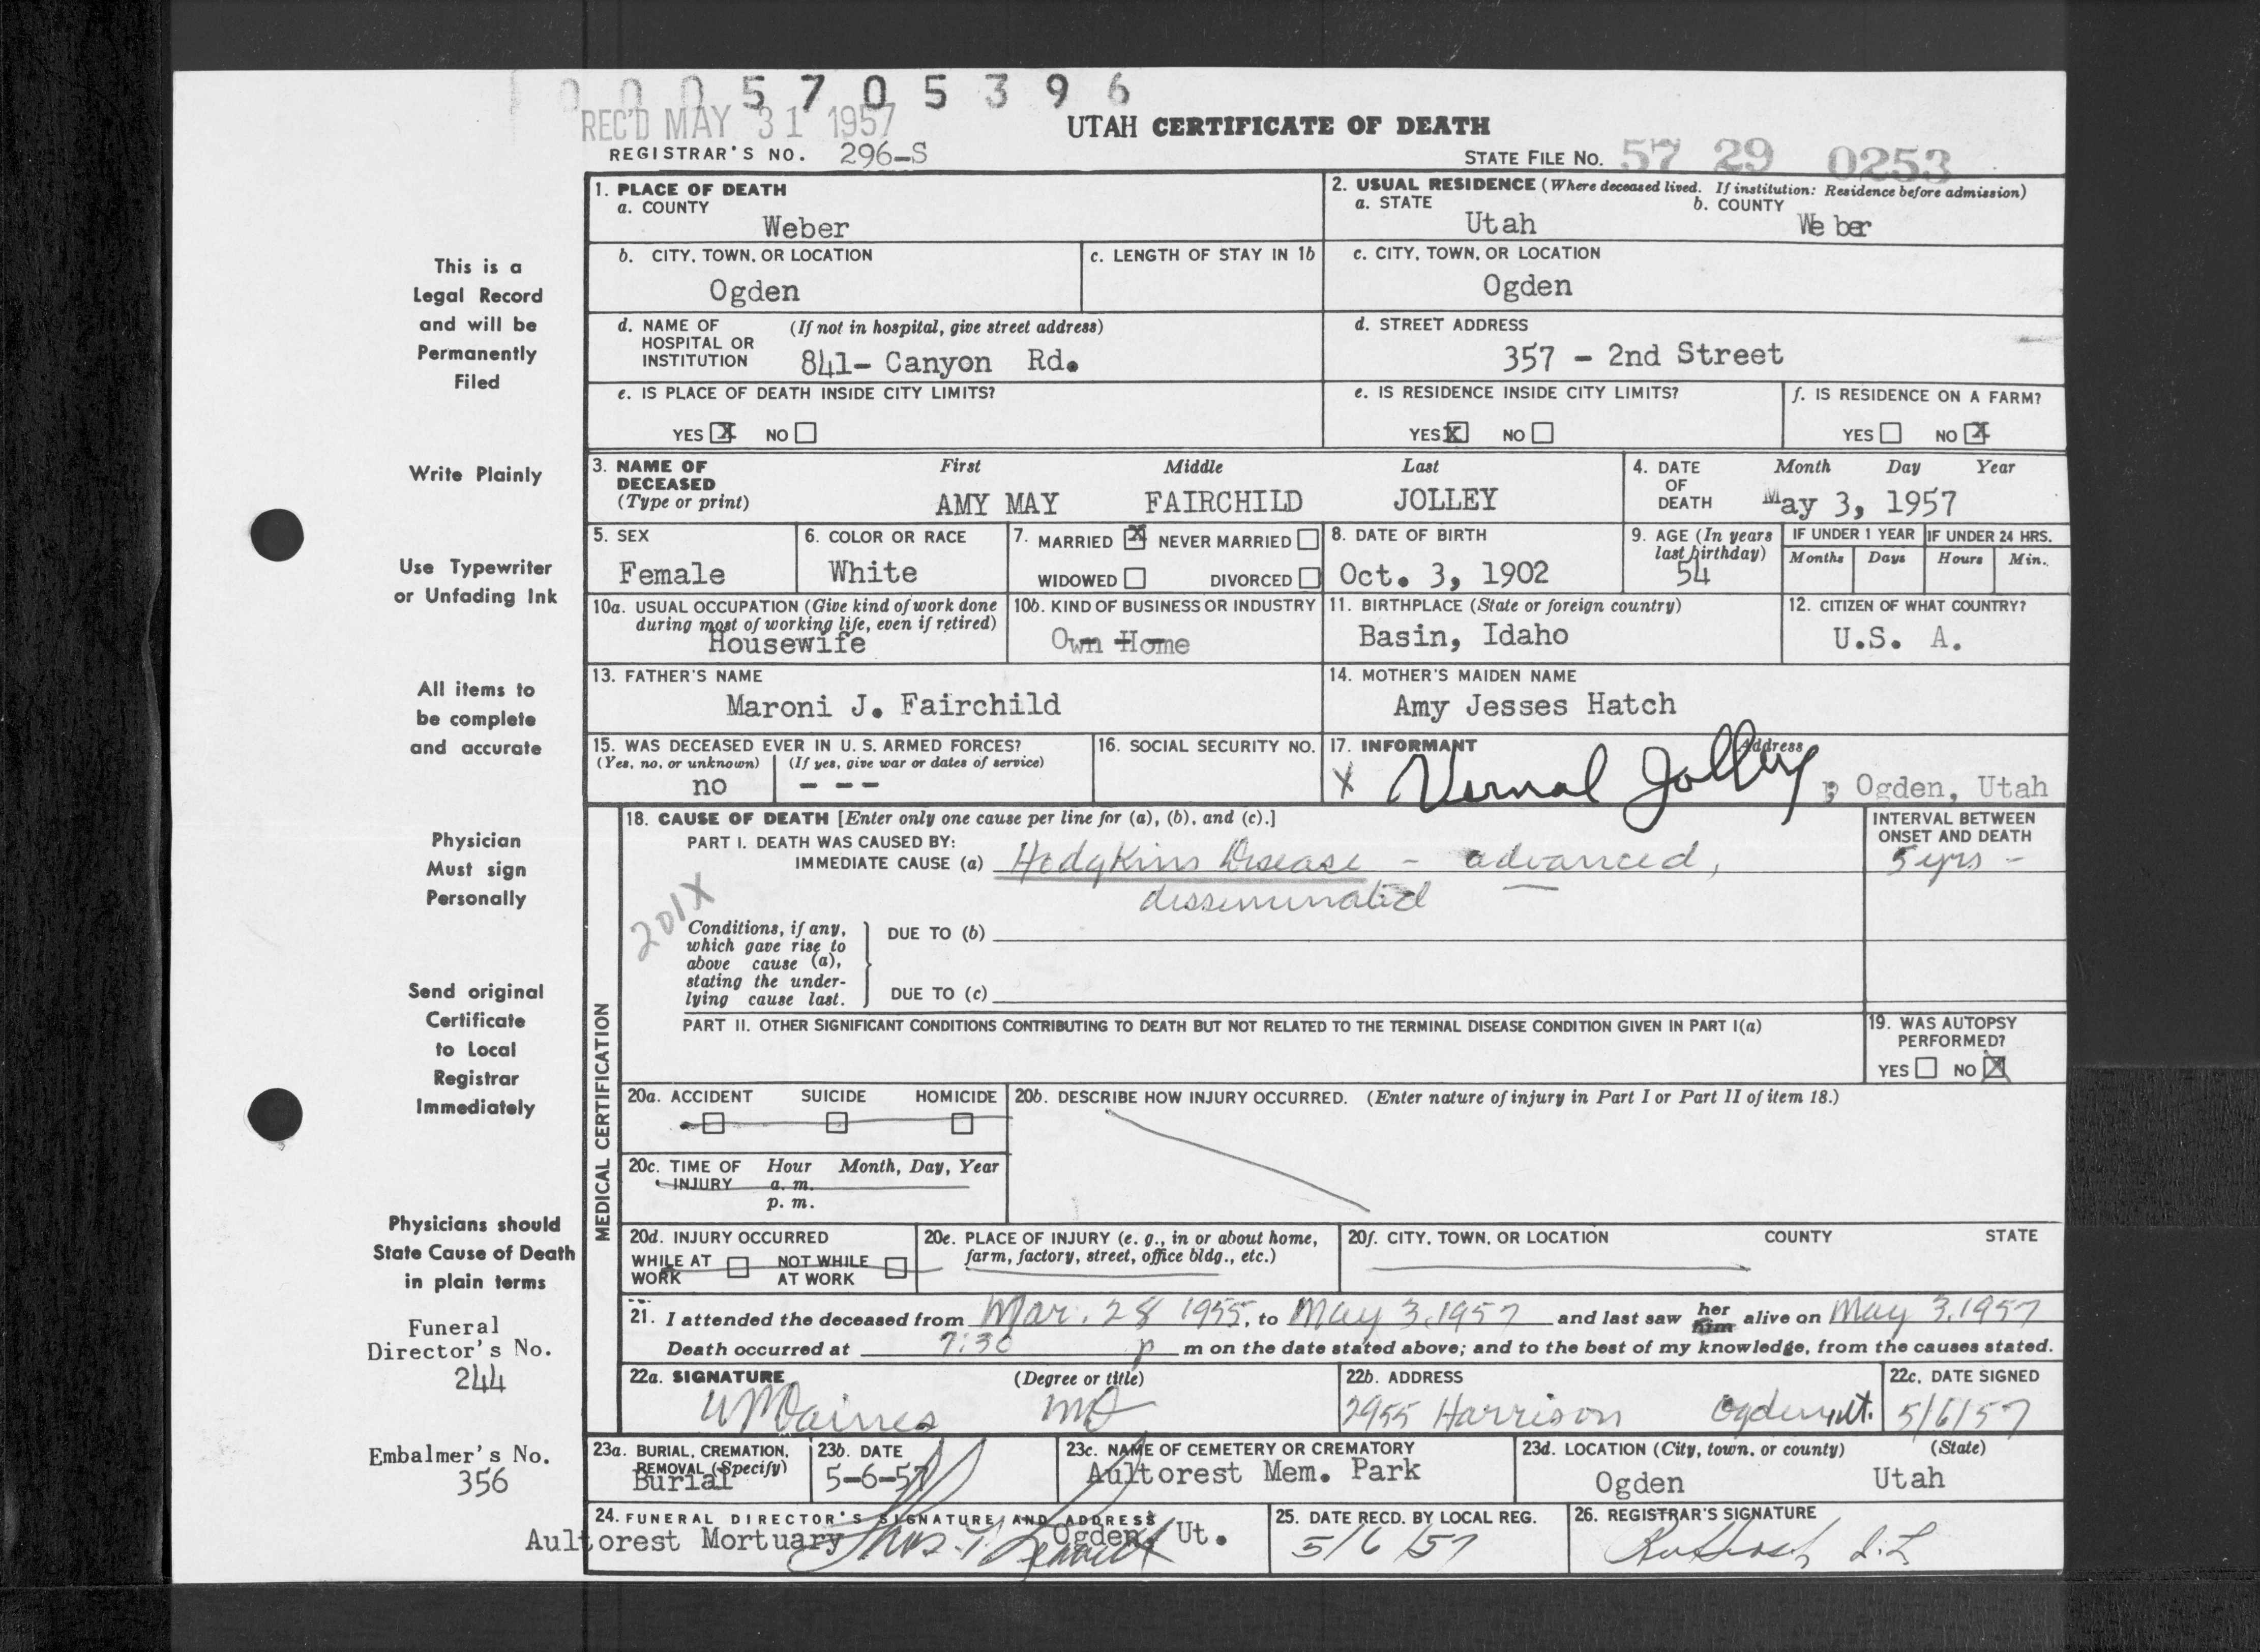 0 0 0 5 7 0 5 3 9 6
REC'D MAY 31 1957
UTAH CERTIFICATE OF DEATH
REGISTRAR'S NO. 296-S
STATE FILE NO. 57 29 0253
This is a
Legal Record
and will be
Permanently
Filed
Write Plainly
Use Typewriter
or Unfading Ink
All items to
be complete
and accurate
Physician
Must sign
Personally
Send original
Certificate
to Local
Registrar
Immediately
Physicians should
State Cause of Death
in plain terms
Funeral
Director's No.
244
Embalmer's No.
356
1. PLACE OF DEATH
a. COUNTY
Weber
2. USUAL RESIDENCE (Where deceased lived. If institution: Residence before admission)
a. STATE b. COUNTY
Utah We ber
b. CITY, TOWN, OR LOCATION
Ogden
c. LENGTH OF STAY IN 1b
c. CITY, TOWN, OR LOCATION
Ogden
d. NAME OF (If not in hospital, give street address)
HOSPITAL OR
INSTITUTION 841- Canyon Rd.
d. STREET ADDRESS
357 - 2nd Street
e. IS PLACE OF DEATH INSIDE CITY LIMITS?
YES X NO
e. IS RESIDENCE INSIDE CITY LIMITS?
YES X NO
f. IS RESIDENCE ON A FARM?
YES NO X
3. NAME OF First Middle Last
DECEASED
(Type or print) AMY MAY FAIRCHILD JOLLEY
4. DATE Month Day Year
OF
DEATH May 3, 1957
5. SEX
Female
6. COLOR OR RACE
White
7. MARRIED X NEVER MARRIED
WIDOWED DIVORCED
8. DATE OF BIRTH
Oct. 3, 1902
9. AGE (In years
last birthday)
54
IF UNDER 1 YEAR IF UNDER 24 HRS.
Months Days Hours Min.
10a. USUAL OCCUPATION (Give kind of work done
during most of working life, even if retired)
Housewife
10b. KIND OF BUSINESS OR INDUSTRY
Own Home
11. BIRTHPLACE (State or foreign country)
Basin, Idaho
12. CITIZEN OF WHAT COUNTRY?
U.S. A.
13. FATHER'S NAME
Maroni J. Fairchild
14. MOTHER'S MAIDEN NAME
Amy Jesses Hatch
15. WAS DECEASED EVER IN U. S. ARMED FORCES?
(Yes, no, or unknown) (If yes, give war or dates of service)
no - - -
16. SOCIAL SECURITY NO.
17. INFORMANT Address
X Vernal Jolley , Ogden, Utah
MEDICAL CERTIFICATION
18. CAUSE OF DEATH [Enter only one cause per line for (a), (b), and (c).]
INTERVAL BETWEEN
ONSET AND DEATH
PART I. DEATH WAS CAUSED BY:
IMMEDIATE CAUSE (a) Hodgkins Disease - advanced, 5 yrs -
disseminated
201X
Conditions, if any,
which gave rise to
above cause (a),
stating the under-
lying cause last.
DUE TO (b)
DUE TO (c)
PART II. OTHER SIGNIFICANT CONDITIONS CONTRIBUTING TO DEATH BUT NOT RELATED TO THE TERMINAL DISEASE CONDITION GIVEN IN PART I(a)
19. WAS AUTOPSY
PERFORMED?
YES NO X
20a. ACCIDENT SUICIDE HOMICIDE
20b. DESCRIBE HOW INJURY OCCURRED. (Enter nature of injury in Part I or Part II of item 18.)
20c. TIME OF Hour Month, Day, Year
INJURY a. m.
p. m.
20d. INJURY OCCURRED
WHILE AT NOT WHILE
WORK AT WORK
20e. PLACE OF INJURY (e. g., in or about home,
farm, factory, street, office bldg., etc.)
20f. CITY, TOWN, OR LOCATION COUNTY STATE
21. I attended the deceased from Mar. 28 1955, to May 3, 1957 and last saw her him alive on May 3, 1957
Death occurred at 7:30 p m on the date stated above; and to the best of my knowledge, from the causes stated.
22a. SIGNATURE (Degree or title)
W M Daines MD
22b. ADDRESS
2955 Harrison Ogden, Ut.
22c. DATE SIGNED
5/6/57
23a. BURIAL, CREMATION,
REMOVAL (Specify)
Burial
23b. DATE
5-6-57
23c. NAME OF CEMETERY OR CREMATORY
Aultorest Mem. Park
23d. LOCATION (City, town, or county) (State)
Ogden Utah
24. FUNERAL DIRECTOR'S SIGNATURE AND ADDRESS
Aultorest Mortuary Ogden, Ut.
25. DATE RECD. BY LOCAL REG.
5/6/57
26. REGISTRAR'S SIGNATURE